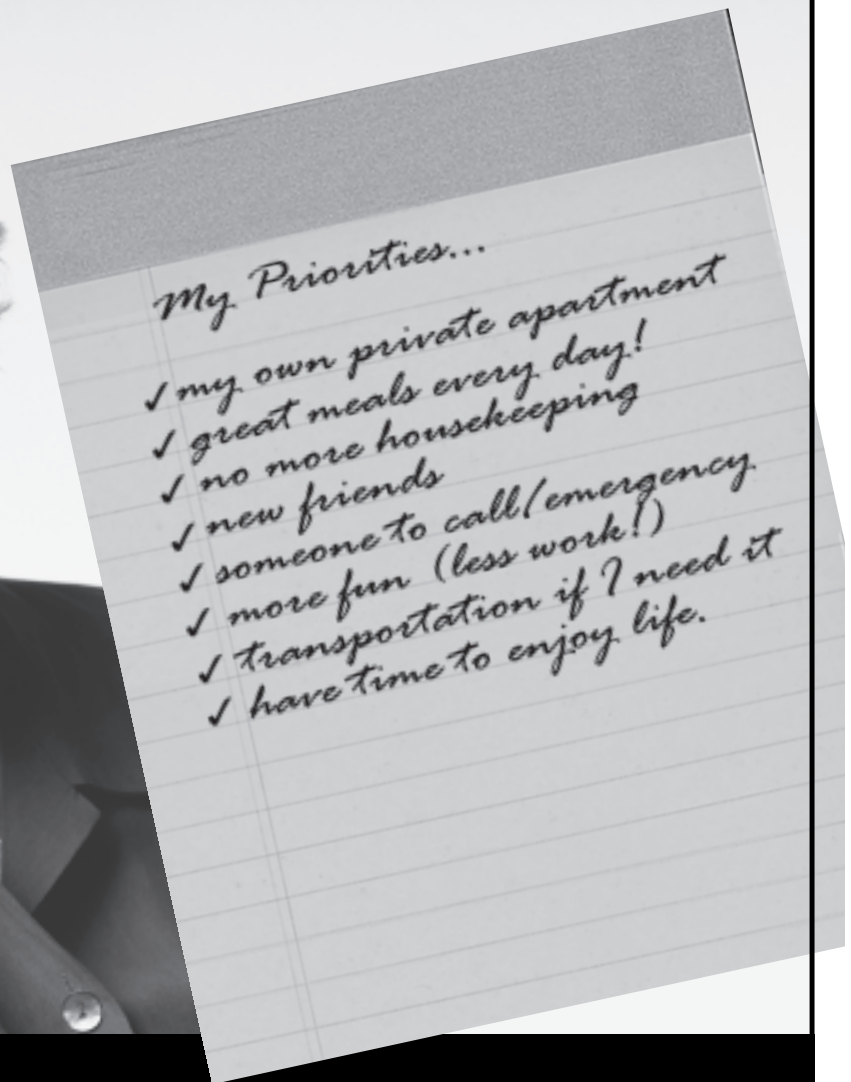 My Priorities...
✓ my own private apartment
✓ great meals every day!
✓ no more housekeeping
✓ new friends
✓ someone to call/emergency
✓ more fun (less work!)
✓ transportation if I need it
✓ have time to enjoy life.